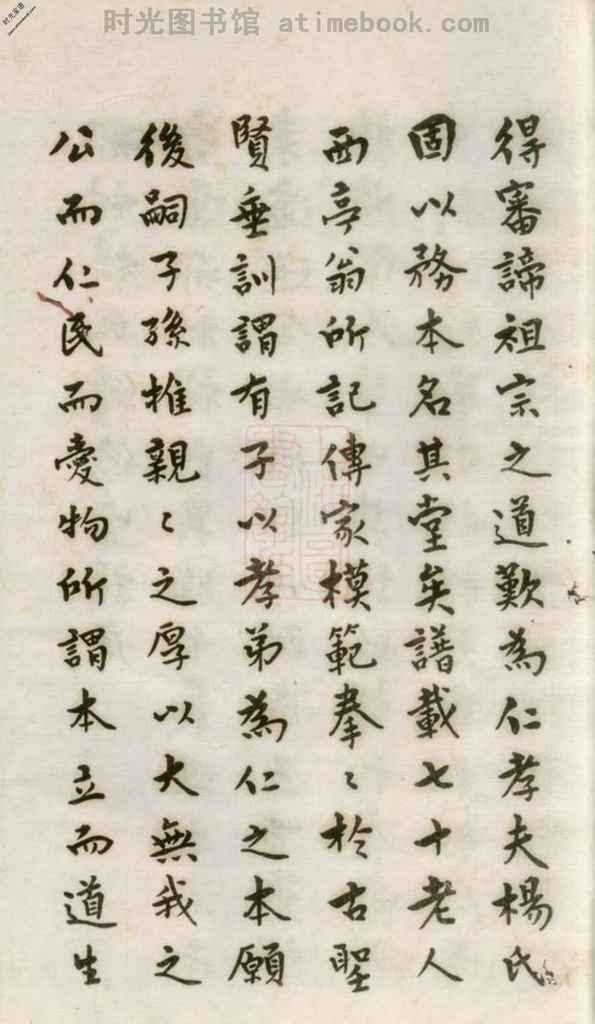 时光图书馆 - atimebook.com
得審諦祖宗之道歟為仁孝夫楊氏
固以務本名其堂矣譜載七十老人
西亭翁所記傳家模範拳〻於古聖
賢垂訓謂有子以孝弟為仁之本願
後嗣子孫推親〻之厚以大無我之
公而仁民而愛物所謂本立而道生